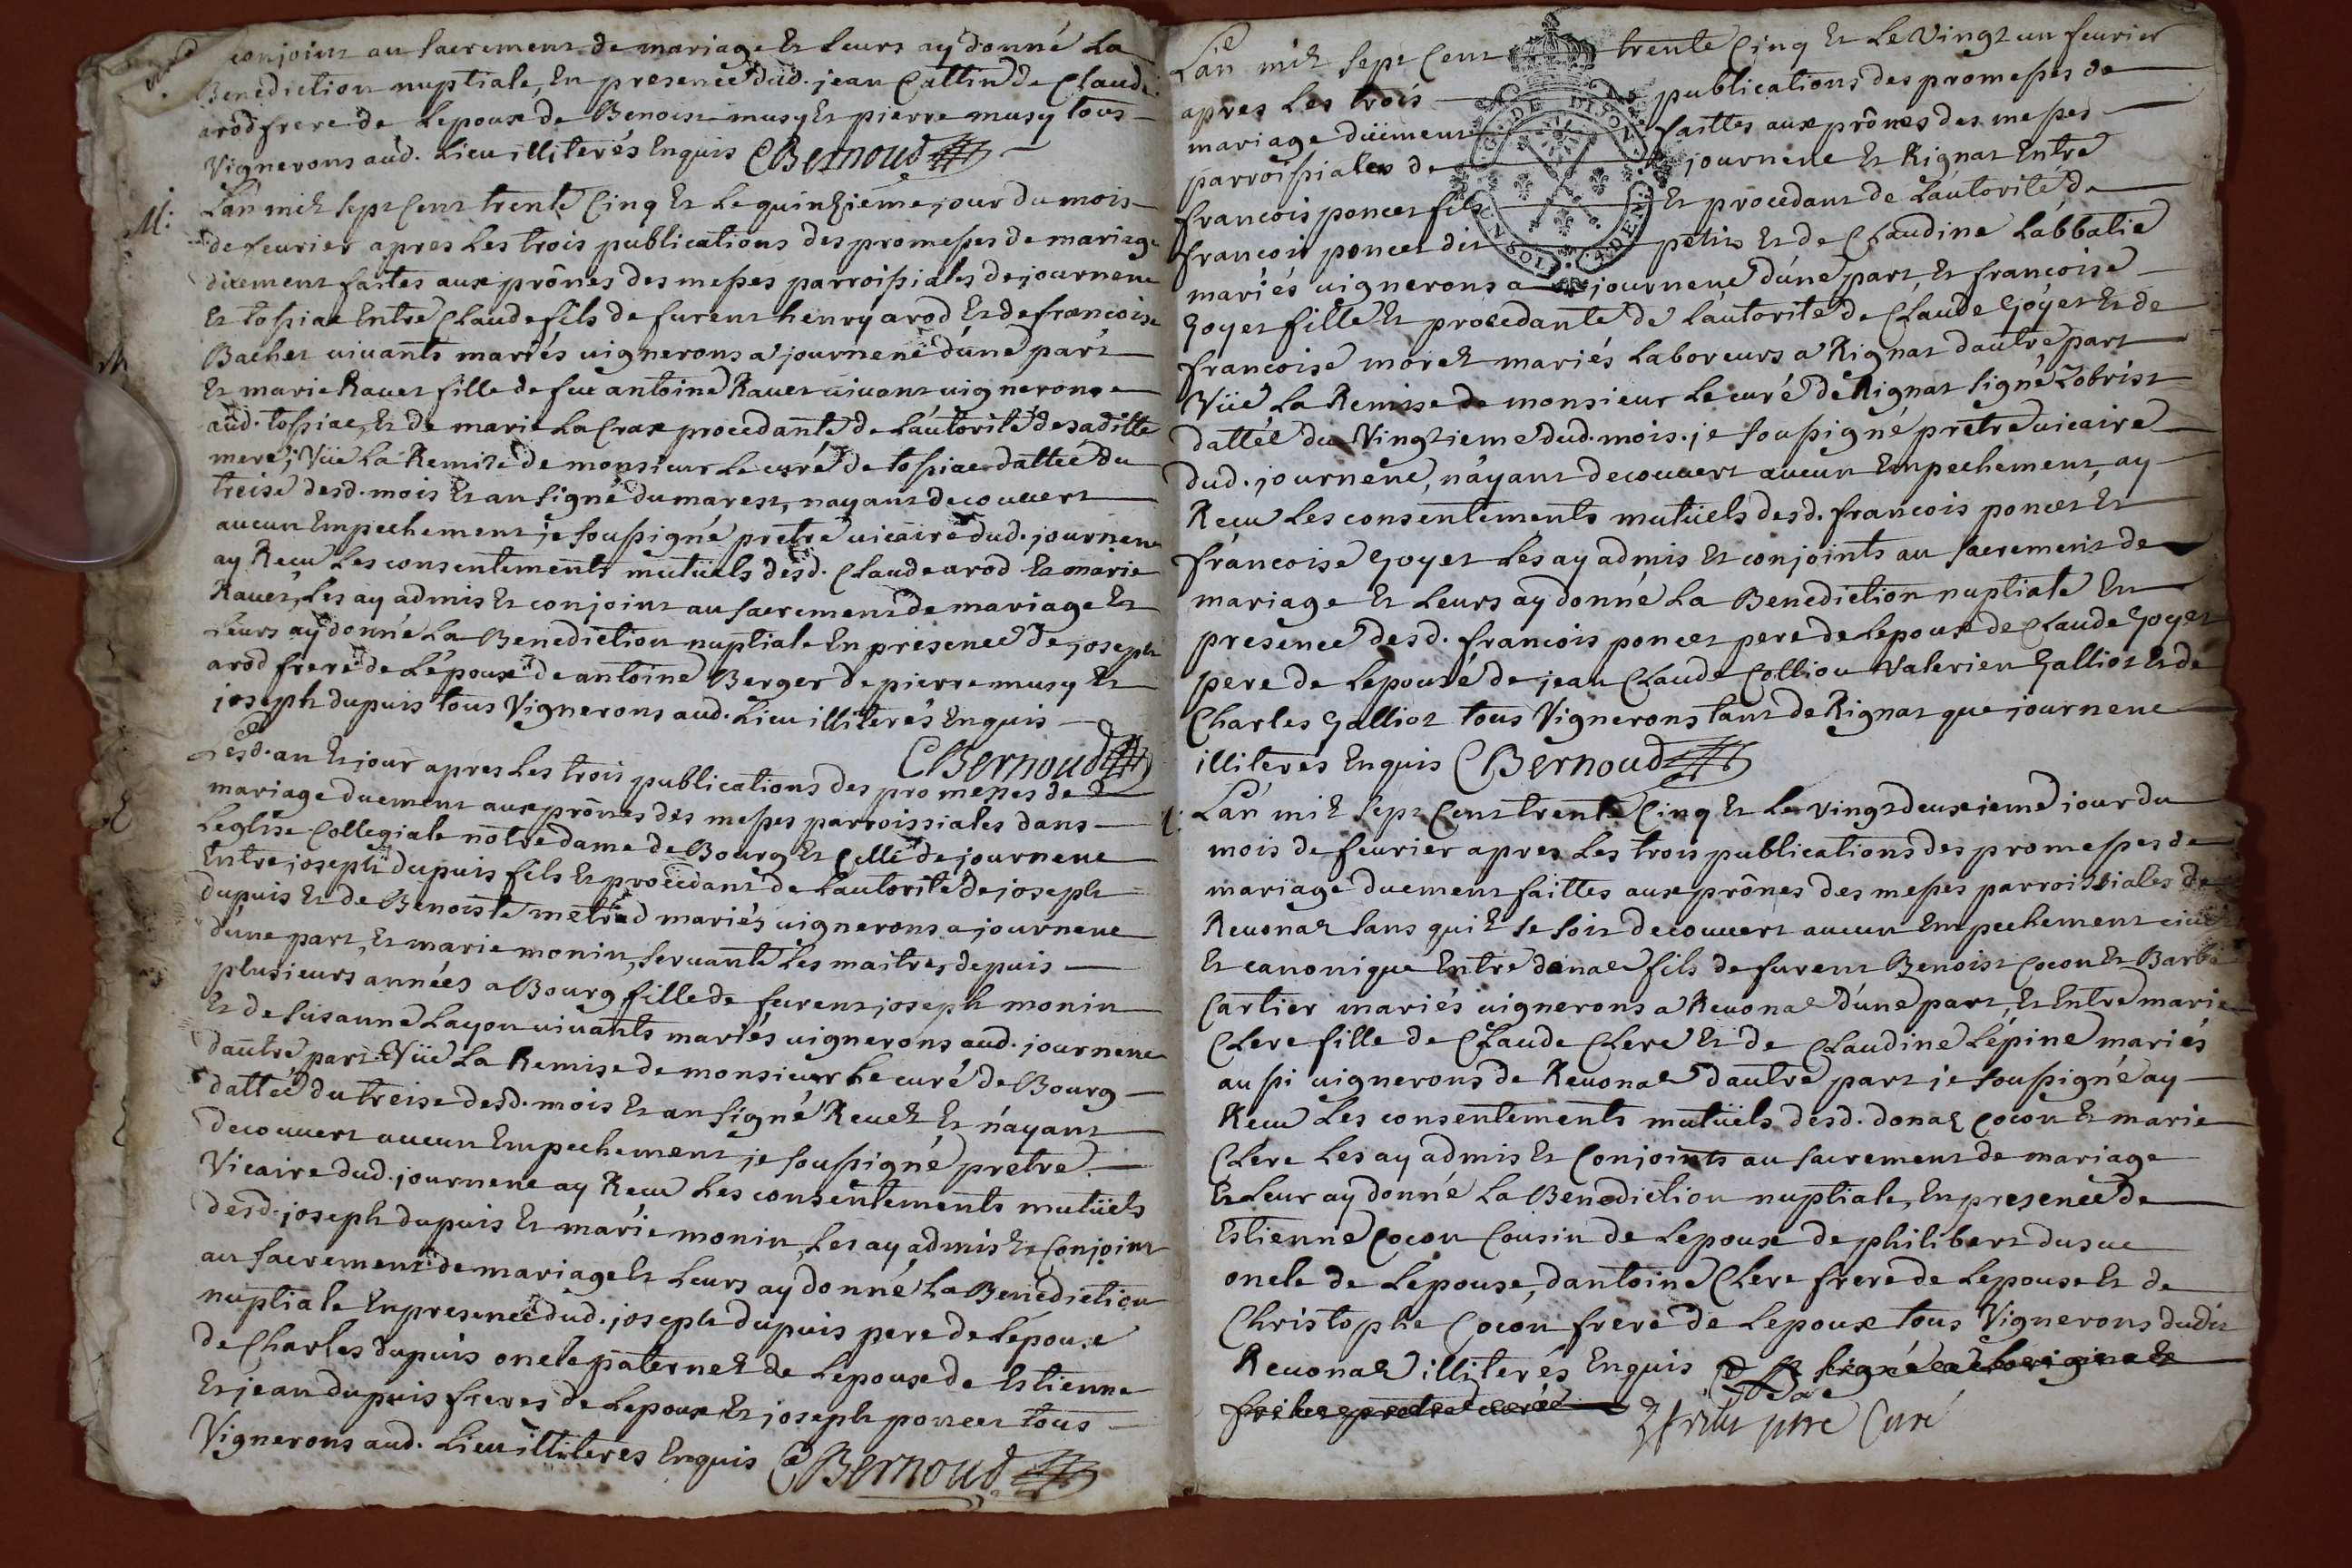 conjoint au sacrement de mariage et leurs ay donné La
Benediction nuptiale, En presence dud. jean Cattin de Claude
arod frere de Lepoux de Benoist musy et pierre musy tous
Vignerons aud. Lieu illiterés Enquis CBernoud
M:
L'an mil sept Cent trente Cinq et Le quinzieme jour du mois
de feurier apres Les trois publications des promesses de mariage
düement faites aux prônes des messes parroissiales de journene
et tossiat Entre Claude fils de furent henry arod et de francoise
Bachet uiuants mariés uignerons a journene d'une part
et marie Rauet fille de feu antoine Rauet uiuant uigneron
aud. tossiat, et de marie La Crax procedante de L'autorité de sa ditte
mere; Vüe La Remise de monsieur Le curé de tossiat dattée du
treise desd. mois et an signé dumarest, nayant decouuert
aucun Empechement je soussigné pretre uicaire dud. journene
ay Recu Les consentements mutüels desd. Claude arod et marie
Rauet, Les ay admis et conjoint au sacrement de mariage et
Leurs ay donné La Benediction nuptiale En presence de joseph
arod frere de L'époux de antoine Berger de pierre musy et
joseph dupuis tous Vignerons aud. Lieu illiterés Enquis
CBernoud
Lesd. an et jour apres Les trois publications des promesses de
mariage duement aux prônes des messes parroissiales dans
Leglise Collegiale nôtre dame de Bourg et Celle de journene
Entre joseph dupuis fils et procedant de Lautorité de joseph
dupuis et de Benoiste metrad mariés uignerons a journene
d'une part, et marie monin, seruante Les maitres depuis
plusieurs années a Bourg fille de furent joseph monin
et de susanne Layon uiuants mariés uignerons aud. journene
dautre part Vüe La Remise de monsieur Le curé de Bourg
dattée du treise desd. mois et an signé Reuel et n'ayant
decouuert aucun Empechement je soussigné pretre
Vicaire dud. journene ay Recu Les consentements mutüels
desd. joseph dupuis et marie monin, Les ay admis et Conjoint
au sacrement de mariage et Leurs ay donné La Benediction
nuptiale En presence dud. joseph dupuis pere de Lépoux
de Charles dupuis oncle paternel de Lepoux de Estienne
et jean dupuis freres de Lepoux et joseph poncet tous
Vignerons aud. Lieu illiteres Enquis CBernoud
L'an mil sept Cent trente Cinq et Le Vingt un feurier
apres Les trois publications des promesses de
mariage düement faittes aux prônes des messes
parroissiales de journene et Rignat Entre
francois poncet fils et procedant de L'autorité de
francois poncet dit petit et de Claudine Labbatie
mariés uignerons a journene d'une part, et francoise
Goyet fille et procedante de L'autorité de Claude Goyet et de
francoise morel mariés Laboreurs a Rignat dautre part
Vüe La Remise de monsieur Le curé de Rignat signé Lobrist
dattée du Vingtieme dud. mois. je soussigné pretre uicaire
dud. journene, n'ayant decouuert aucun Empechement, ay
Recu Les consentements mutüels desd. francois poncet et
francoise Goyet Les ay admis et conjoints au sacrement de
mariage et Leurs ay donné La Benediction nuptiale En
presence desd. francois poncet pere de Lepoux de Claude Goyet
pere de Lepouse de jean Claude Colliou Valerien Galliot et de
Charles Galliot tous Vignerons tant de Rignat que journene
illiteres Enquis CBernoud
L'an mil sept Cent trente Cinq et Le vingt deuxieme jour du
mois de feurier apres Les trois publications des promesses de
mariage duement faittes aux prônes des messes parroissiales de
Reuonas sans quil se soit decouuert aucun Empechement ciuil
et canonique Entre donat fils de furent Benoist Cocon et Barbe
Cartier mariés uignerons a Reuonas d'une part, et Entre marie
Clere fille de Claude Clere et de Claudine Lépine mariés
aussi uignerons de Reuonas dautre part je soussigné ay
Recu Les consentements mutüels desd. donat Cocon et marie
Clere Les ay admis et Conjoints au sacrement de mariage
et Leur ay donné La Benediction nuptiale, En presence de
Estienne Cocon Cousin de Lepoux de philibert dusuc
oncle de Lepouse, dantoine Clere frere de Lepouse et de
Christophe Cocon frere de Lepoux tous Vignerons dudit
Reuonas illiterés Enquis signé a Loriginal
pretre curé
ptre Curé
G. DE DIJON